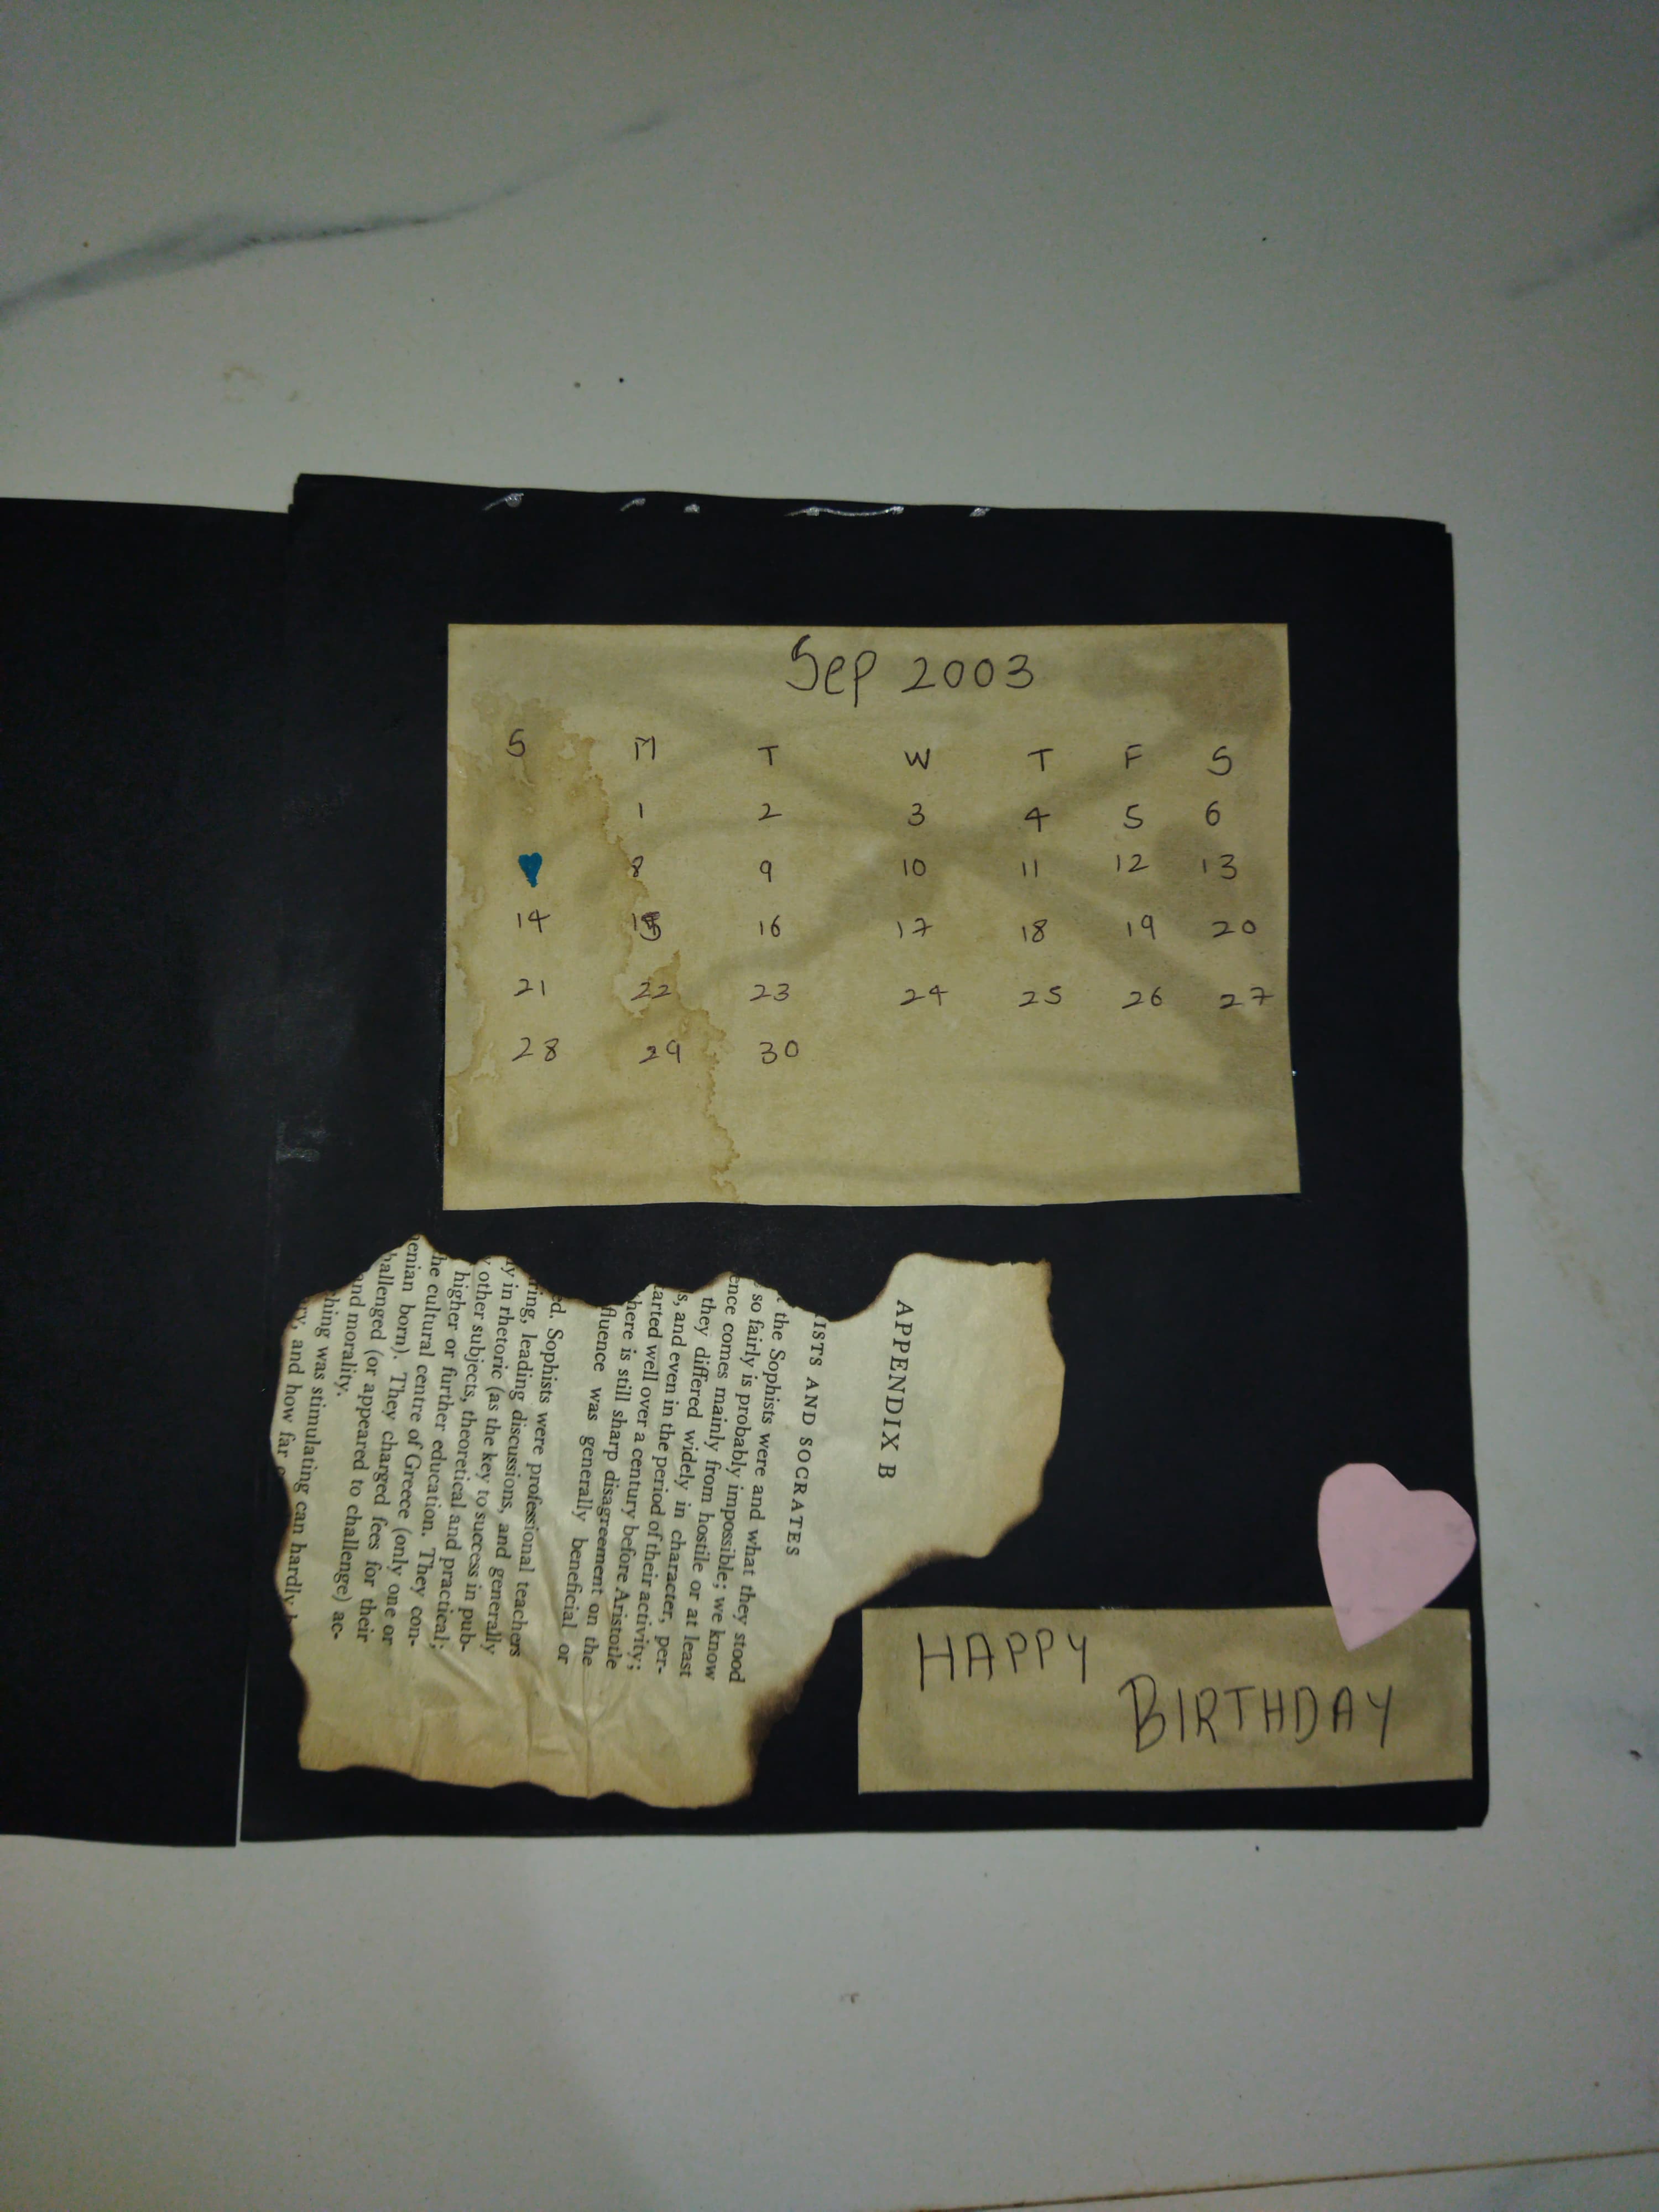 Sep 2003
S M T W T F S
1 2 3 4 5 6
8 9 10 11 12 13
14 15 16 17 18 19 20
21 22 23 24 25 26 27
28 29 30
APPENDIX B
ISTS AND SOCRATES
the Sophists were and what they stood
so fairly is probably impossible; we know
ence comes mainly from hostile or at least
they differed widely in character, per-
s, and even in the period of their activity;
arted well over a century before Aristotle
here is still sharp disagreement on the
fluence was generally beneficial or
ed. Sophists were professional teachers
ring, leading discussions, and generally
ly in rhetoric (as the key to success in pub-
other subjects, theoretical and practical;
higher or further education. They con-
he cultural centre of Greece (only one or
enian born). They charged fees for their
hallenged (or appeared to challenge) ac-
and morality.
ching was stimulating can hardly
ry, and how far
HAPPY
BIRTHDAY